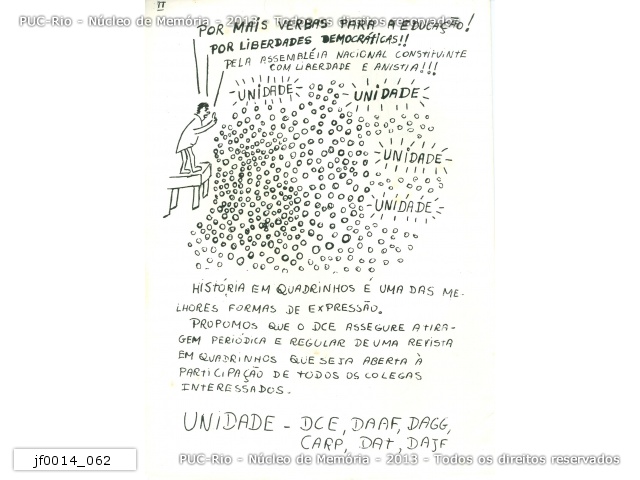 II
PUC-Rio - Núcleo de Memória - 2013 - Todos os direitos reservados
POR MAIS VERBAS PARA A EDUCAÇÃO!
POR LIBERDADES DEMOCRÁTICAS!!
PELA ASSEMBLÉIA NACIONAL CONSTITUINTE
COM LIBERDADE E ANISTIA!!!
UNIDADE
UNIDADE
UNIDADE
UNIDADE
HISTÓRIA EM QUADRINHOS É UMA DAS ME-
LHORES FORMAS DE EXPRESSÃO.
PROPOMOS QUE O DCE ASSEGURE A TIRA-
GEM PERIÓDICA E REGULAR DE UMA REVISTA
EM QUADRINHOS QUE SEJA ABERTA À
PARTICIPAÇÃO DE TODOS OS COLEGAS
INTERESSADOS.
UNIDADE - DCE, DAAF, DAGG,
CARP, DAT, DAJF
jf0014_062
PUC-Rio - Núcleo de Memória - 2013 - Todos os direitos reservados